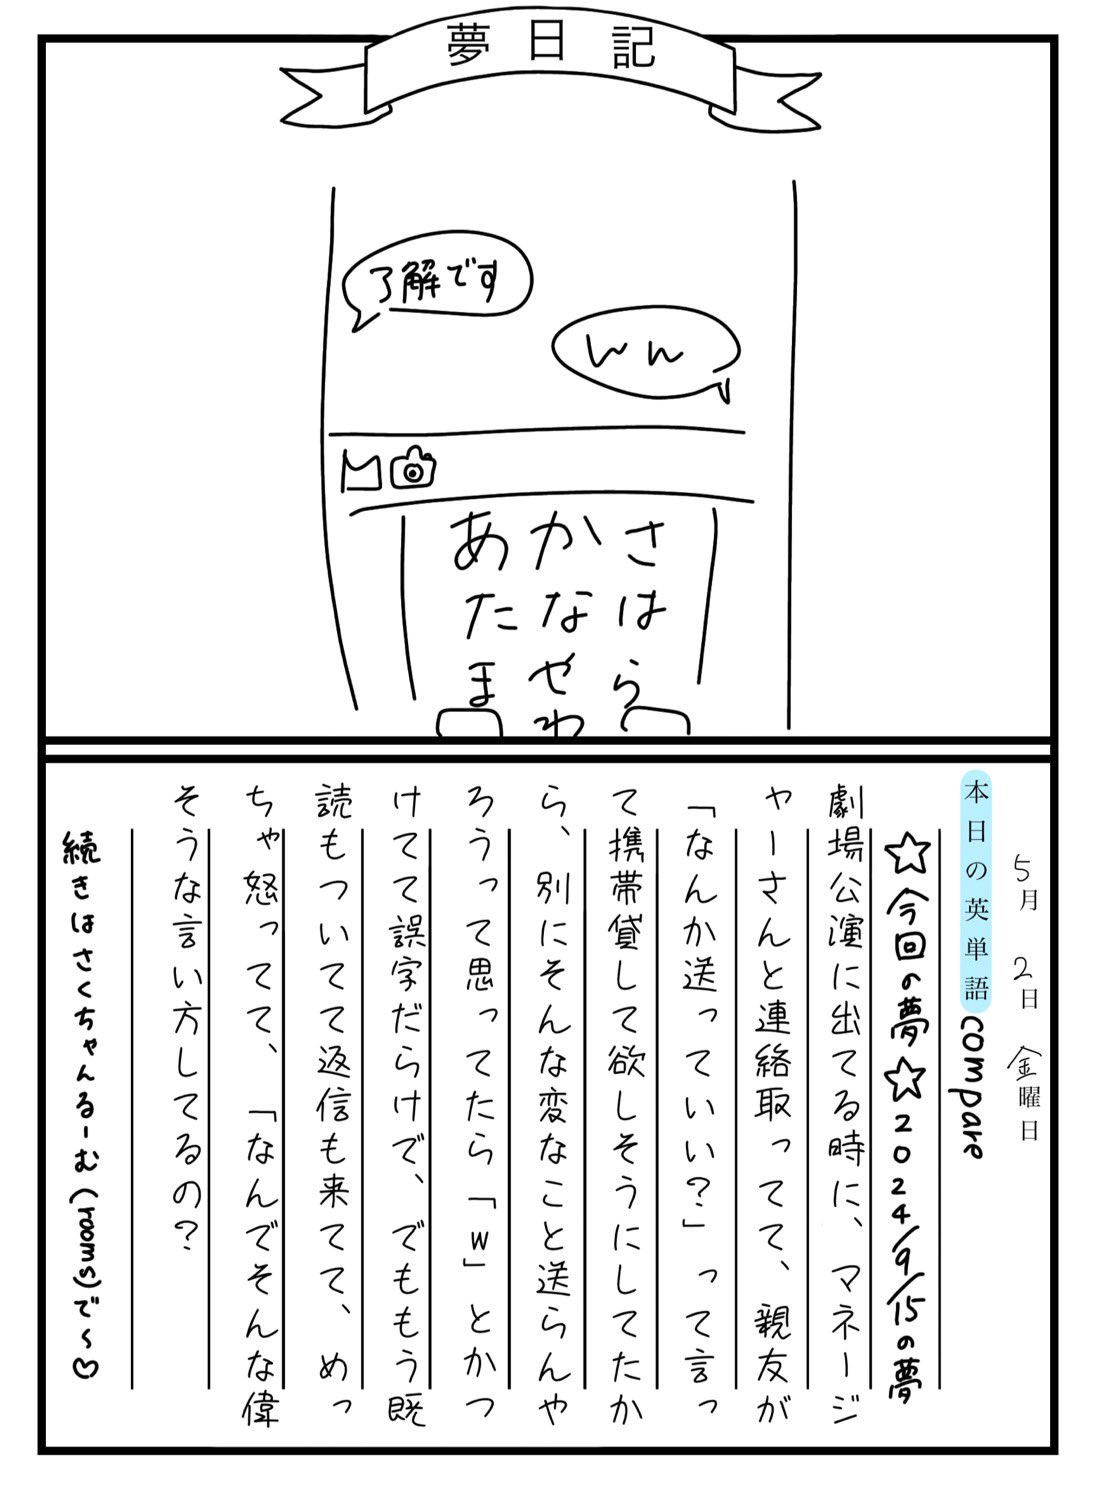 夢日記
了解です
ww
あかさ
たなは
まやら
わ
5月 2日 金曜日
本日の英単語 compare
☆今回の夢☆2024/9/15の夢
劇場公演に出てる時に、マネージ
ャーさんと連絡取ってて、親友が
「なんか送っていい？」って言っ
て携帯貸して欲しそうにしてたか
ら、別にそんな変なこと送らんや
ろうって思ってたら「w」とかつ
けてて誤字だらけで、でももう既
読もついてて返信も来てて、めっ
ちゃ怒ってて、「なんでそんな偉
そうな言い方してるの？
続きはさくちゃんるーむ(rooms)で〜♡